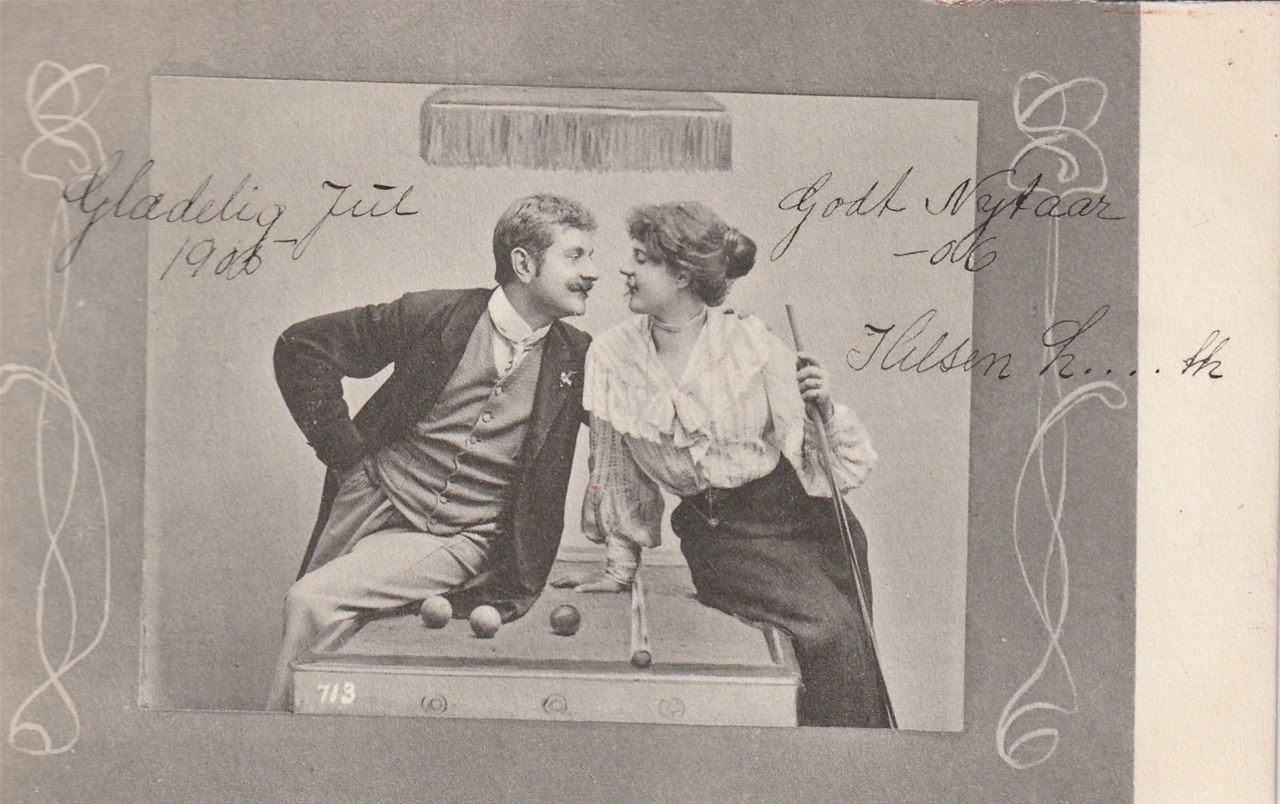 Glædelig Jul
1905
Godt Nytaar
-06
Hilsen L.... th
713